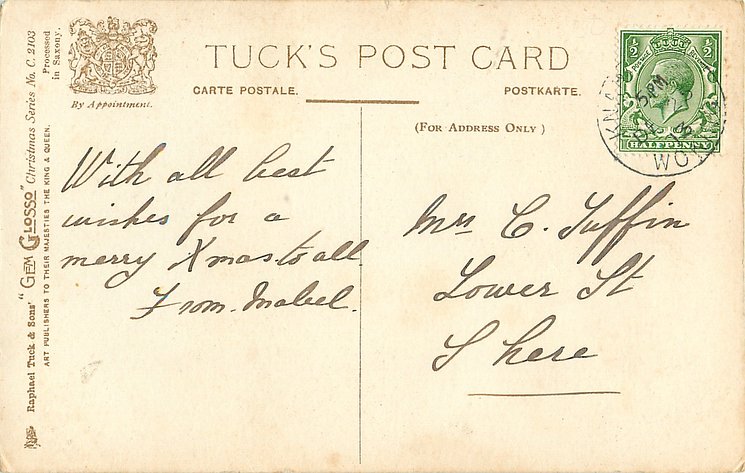 Raphael Tuck & Sons' "GEM GLOSSO" Christmas Series No. C. 2103
ART PUBLISHERS TO THEIR MAJESTIES THE KING & QUEEN.
Processed
in Saxony.
By Appointment.
TUCK'S POST CARD
CARTE POSTALE.
POSTKARTE.
(FOR ADDRESS ONLY)
With all best
wishes for a
merry Xmas to all
From. Mabel.
Mrs C. Tuffin
Lower St
Shere
½ ½
HALFPENNY
5 PM
13
WO